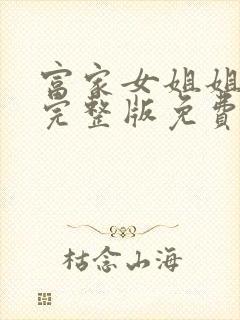 富家女姐姐
完整版免費
枯念山海